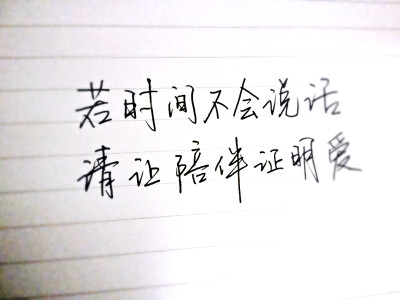 若时间不会说话
请让陪伴证明爱